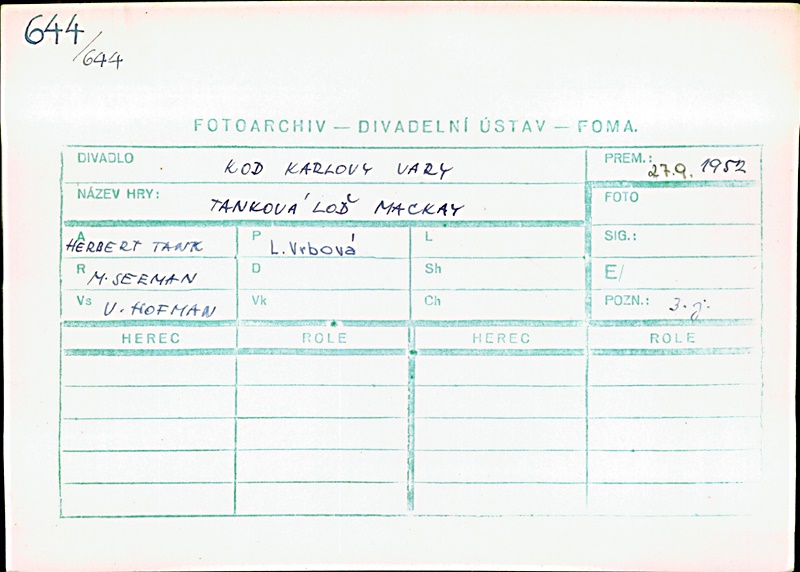 644
/644
FOTOARCHIV — DIVADELNÍ ÚSTAV — FOMA.
DIVADLO KOD KARLOVY VARY PREM.: 27.9. 1952
NÁZEV HRY: TANKOVÁ LOĎ MACKAY FOTO
A HERBERT TANK P L. Vrbová L SIG.:
R M. SEEMAN D Sh E/
Vs V. HOFMAN Vk Ch POZN.: 3. j.
HEREC ROLE HEREC ROLE